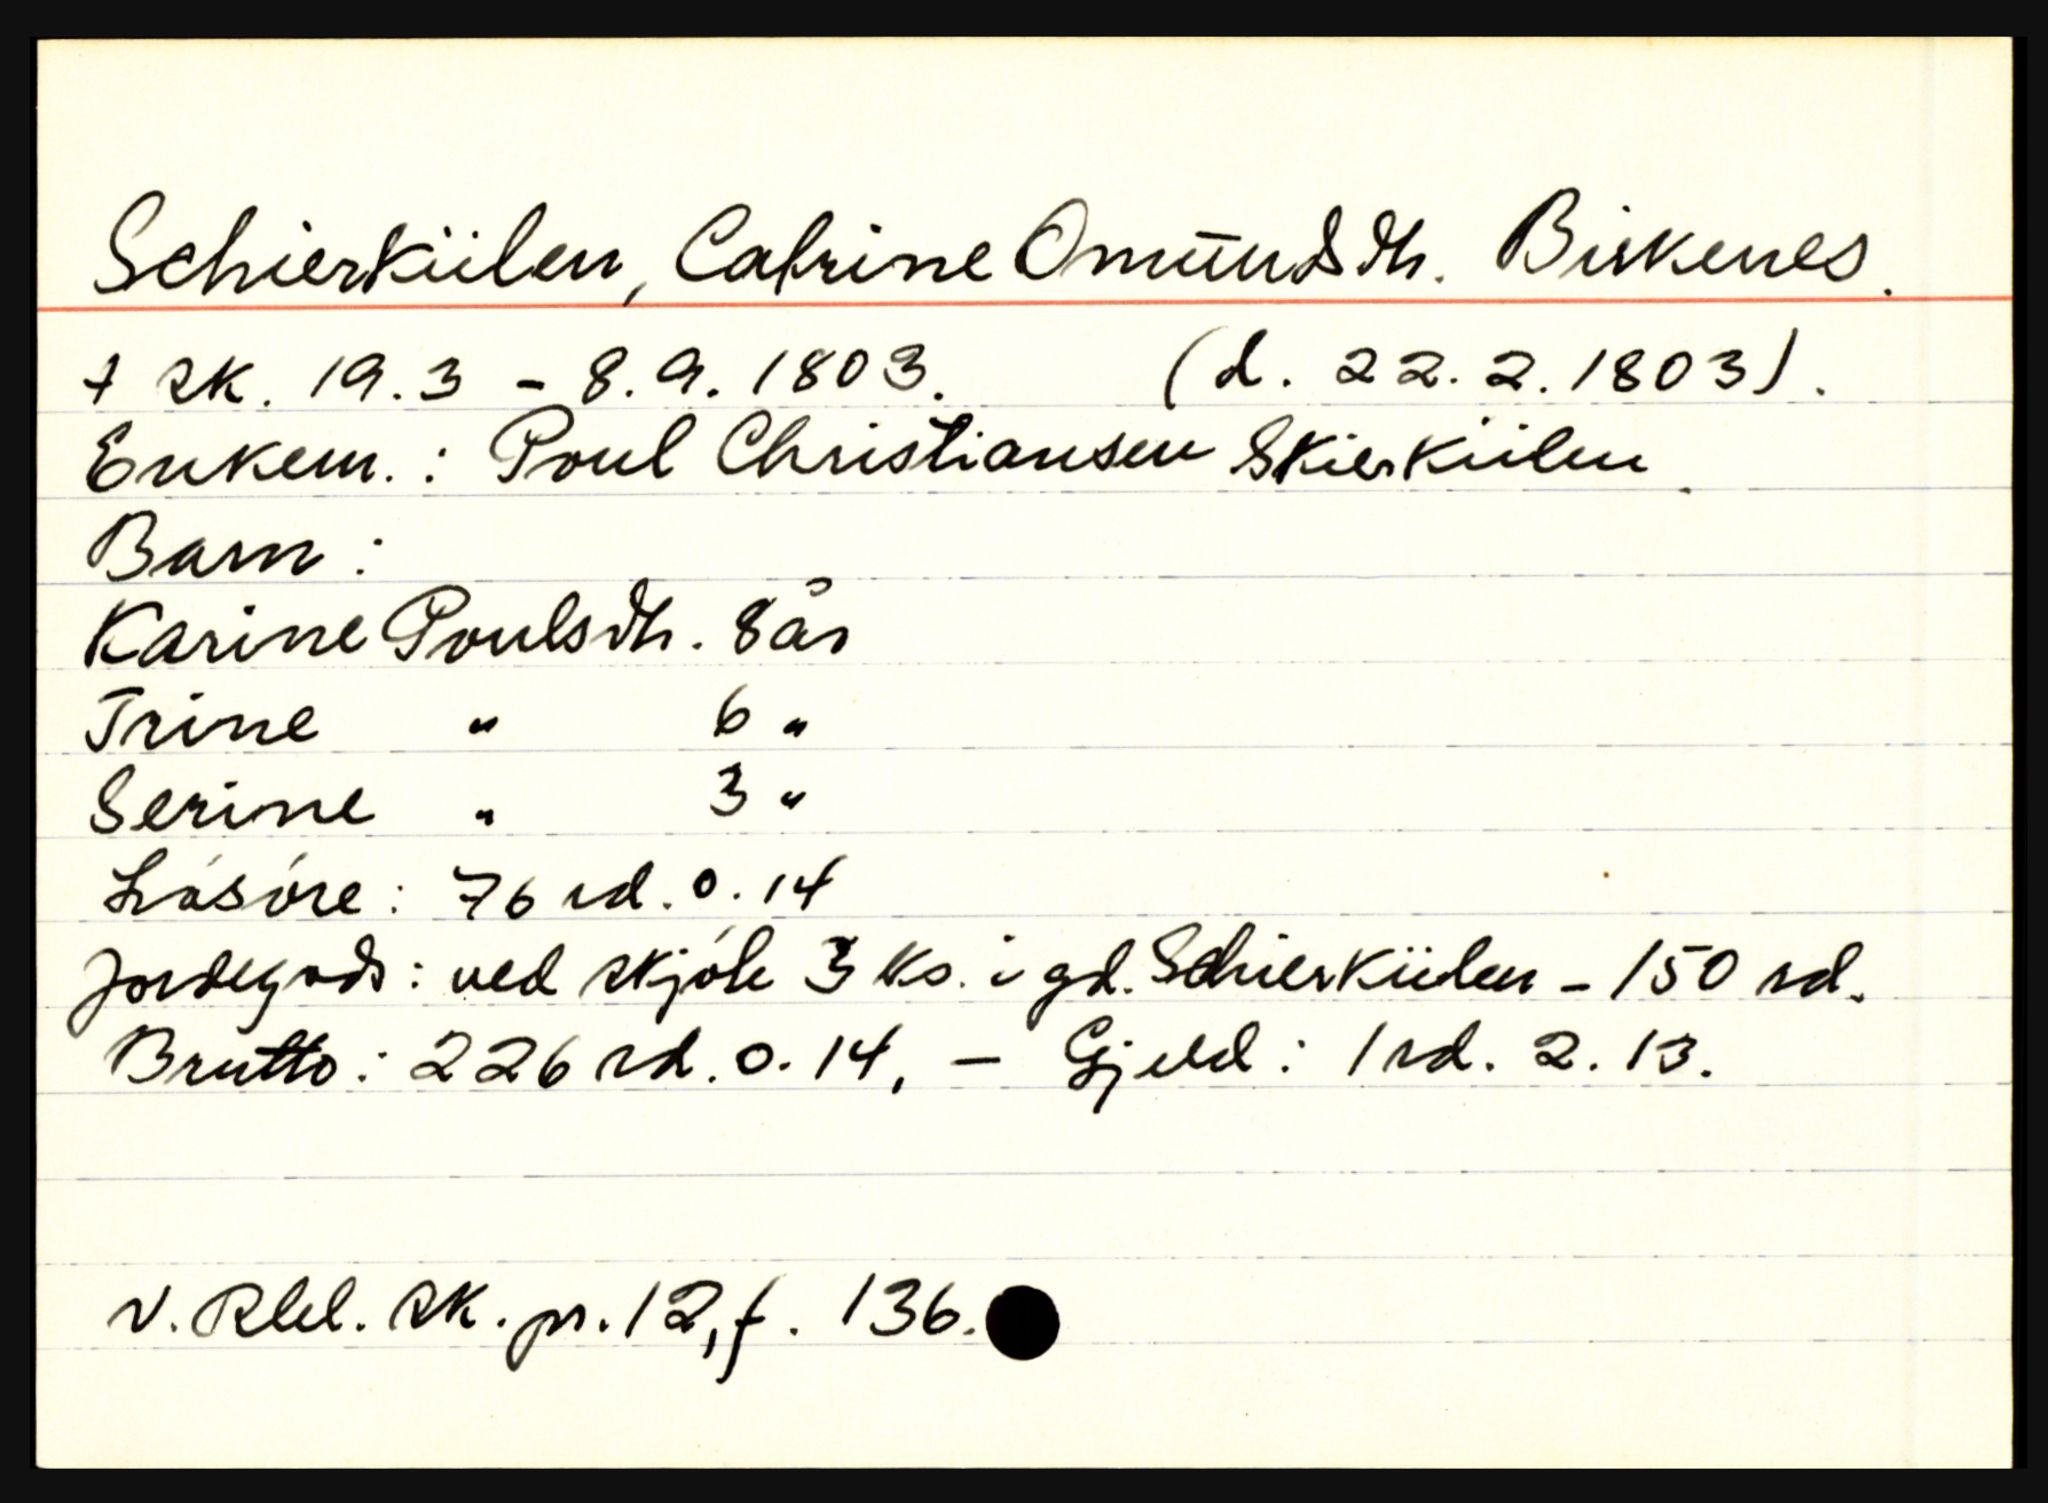 Schierkiilen, Catrine Omundsdtr. Birkenes.
+ sk. 19.3 - 8.9. 1803. (d. 22.2.1803).
Enkem.: Poul Christiansen Skierkiilen.
Barn:
Karine Poulsdtr. 8 år
Trine " 6 "
Serine " 3 "
Lösöre: 76 rd. 0. 14
Jordegods: ved skjöte 3 ks. i gd. Schierkiilen - 150 rd.
Brutto: 226 rd. 0. 14, - Gjeld: 1 rd. 2. 13.
v. Rbl. sk. pr. 12, f. 136.